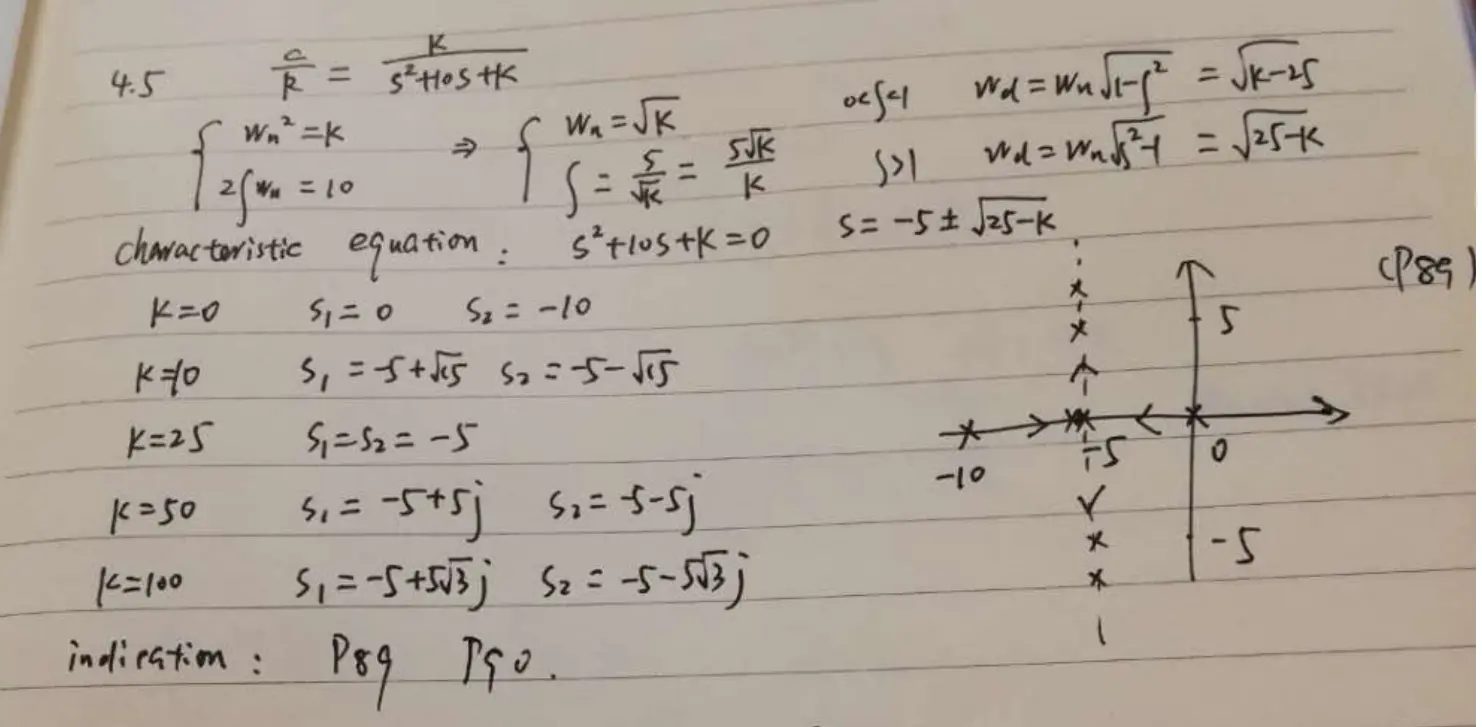 4.5 C/R = K/(s²+10s+K) 0<ζ<1 Wd = Wn√(1-ζ²) = √(K-25)
{ Wn² = K ⇒ { Wn = √K ζ>1 Wd = Wn√(ζ²-1) = √(25-K)
2ζWn = 10 ζ = 5/√K = 5√K/K
characteristic equation : s²+10s+K=0 s = -5 ± √(25-K)
K=0 S₁ = 0 S₂ = -10 (P89)
K=10 S₁ = -5+√15 S₂ = -5-√15
K=25 S₁=S₂ = -5
K=50 S₁ = -5+5j S₂ = -5-5j
K=100 S₁ = -5+5√3j S₂ = -5-5√3j
indication : P89 P90.
5
-10 -5 0
-5